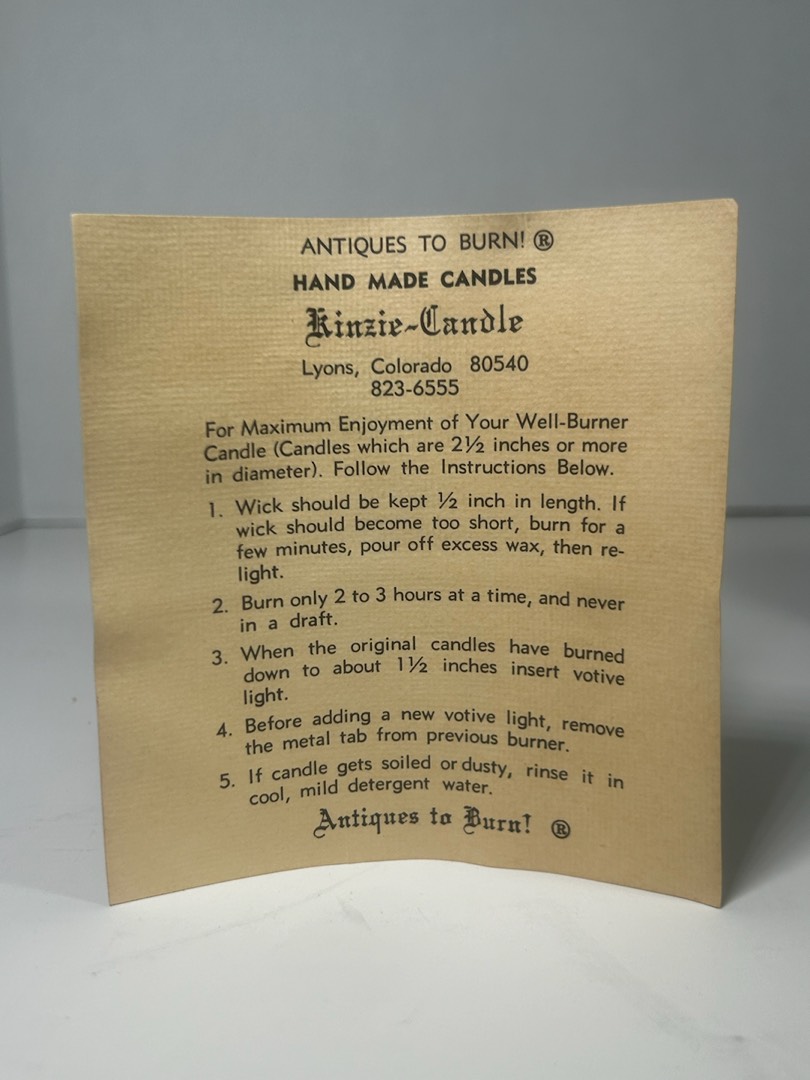 ANTIQUES TO BURN! ®
HAND MADE CANDLES
Kinzie-Candle
Lyons, Colorado 80540
823-6555
For Maximum Enjoyment of Your Well-Burner
Candle (Candles which are 2½ inches or more
in diameter). Follow the Instructions Below.
1. Wick should be kept ½ inch in length. If
wick should become too short, burn for a
few minutes, pour off excess wax, then re-
light.
2. Burn only 2 to 3 hours at a time, and never
in a draft.
3. When the original candles have burned
down to about 1½ inches insert votive
light.
4. Before adding a new votive light, remove
the metal tab from previous burner.
5. If candle gets soiled or dusty, rinse it in
cool, mild detergent water.
Antiques to Burn! ®